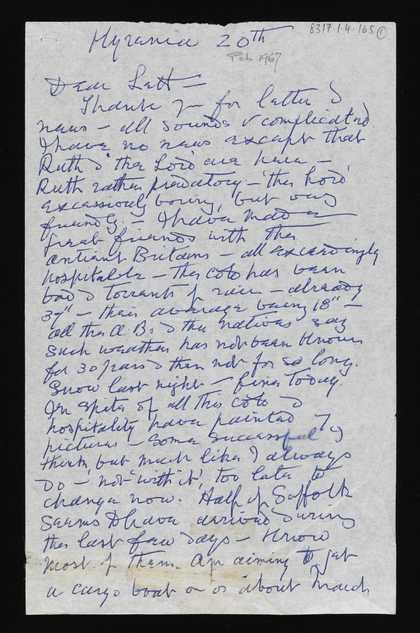 8317.1.4.165 ①
Kyrenia 20th
Feb 1967
Dear Lett –
Thank y– for letter &
news – all sounds v complicated
I have no news except that
Ruth & the Lord are here –
Ruth rather predatory – 'the Lord'
excessively boring, but very
friendly. – I have made
great friends with the
antient Britains – all exceedingly
hospitable – the cold has been
bad & torrents of rain – already
37" – their average being 18" –
all the A Bs & the natives say
such weather has not been known
for 30 years & then not for so long.
Snow last night – fine today.
In spite of all this cold &
hospitality have painted 7
pictures – some successful
think, but much like I always
do – not 'with it', too late to
change now. Half of Suffolk
seems to have arrived during
the last few days – know
most of them. Am aiming to get
a cargo boat on or about March